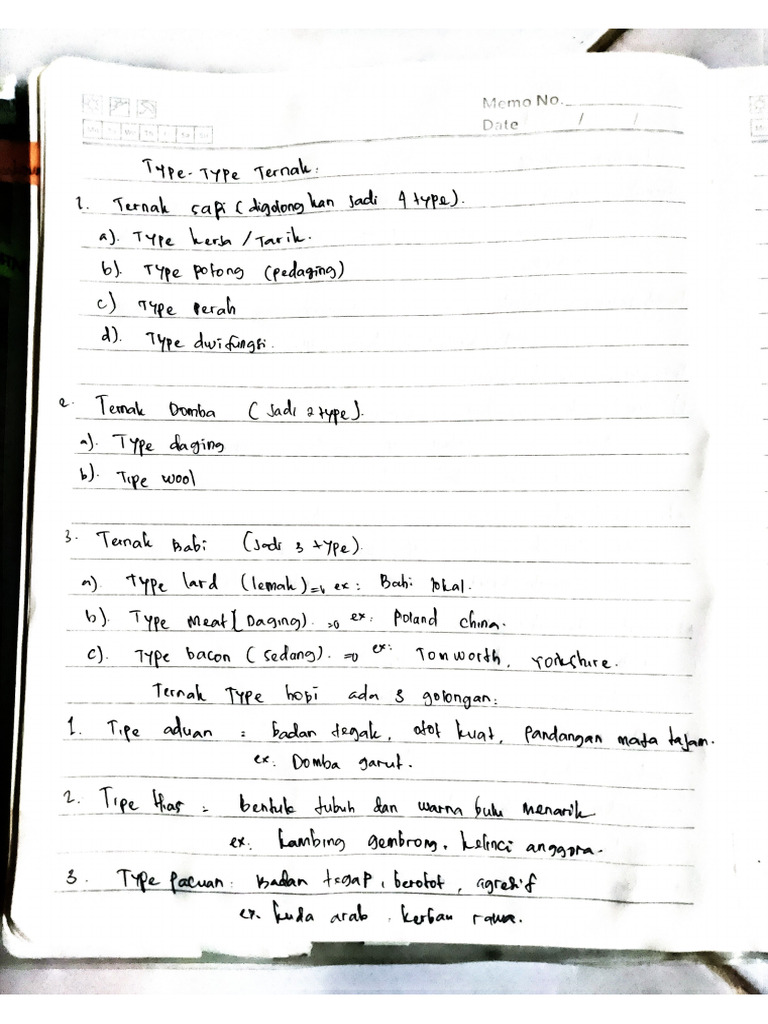 Memo No.
Date / /
Type-Type Ternak:
1. Ternak sapi (digolongkan jadi 4 type).
a). Type kerja / Tarik.
b). Type potong (pedaging)
c) Type perah
d). Type dwifungsi.
2. Ternak Domba (Jadi 2 type).
a). Type daging
b). Tipe wool
3. Ternak Babi (Jadi 3 type).
a). Type lard (lemak) => ex: Babi lokal.
b). Type Meat [Daging). => ex: Poland china.
c). Type bacon (sedang). => ex: Tonworth, Yorkshire.
Ternak Type hobi ada 3 golongan:
1. Tipe aduan = badan tegak, otot kuat, pandangan mata tajam.
ex: Domba garut.
2. Tipe Hias = bentuk tubuh dan warna bulu menarik
ex: kambing gembrong, kelinci anggora.
3. Type Pacuan: Badan tegap, berotot, agresif
ex. kuda arab, kerbau rawa.